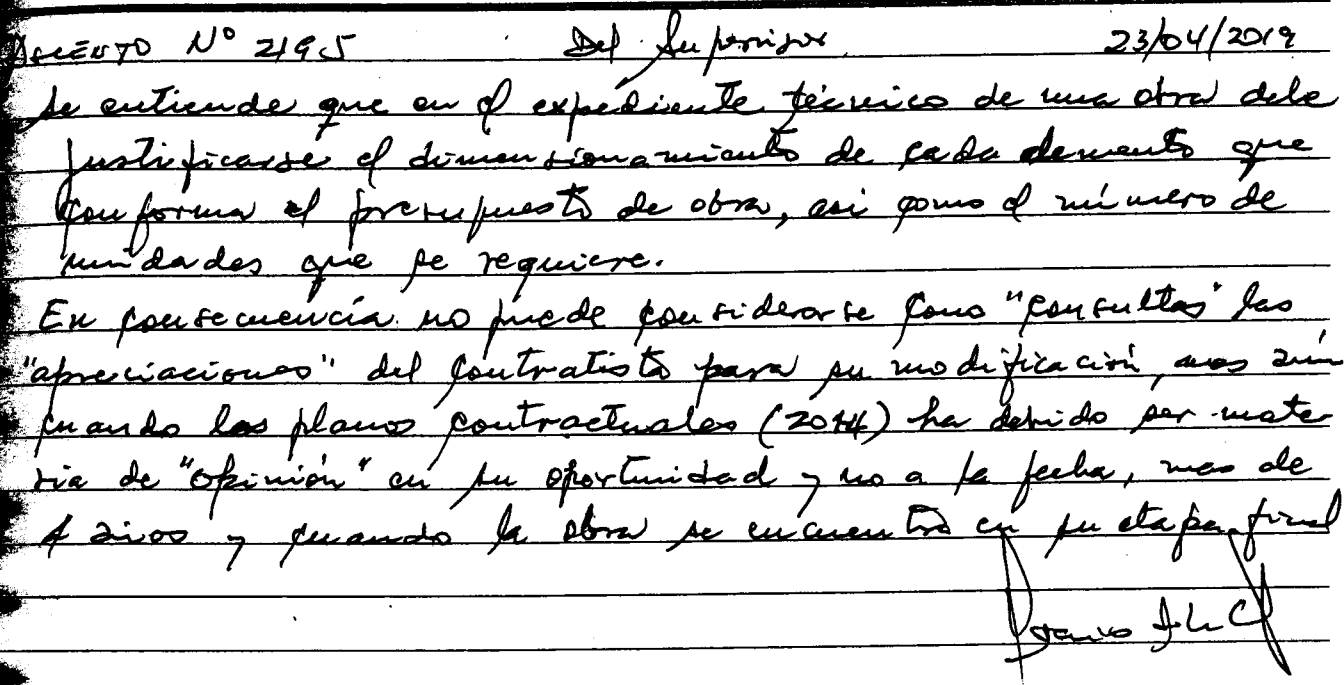 ASIENTO N° 2195 Del Supervisor 23/04/2019
Se entiende que en el expediente técnico de una obra debe
justificarse el dimensionamiento de cada elemento que
conforma el presupuesto de obra, asi como el número de
unidades que se requiere.
En consecuencia no puede considerarse como "consultas" las
"apreciaciones" del contratista para su modificación, mas aún
cuando los planos contractuales (2014) ha debido ser mate-
ria de "opinión" en su oportunidad y no a la fecha, mas de
4 años y cuando la obra se encuentra en su etapa final